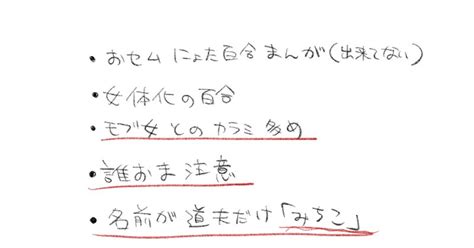 ・おセム にょた百合 まんが(出来てない)
・女体化の百合
・モブ女 との カラミ 多め
・誰おま 注意
・名前が 道夫だけ「みちこ」